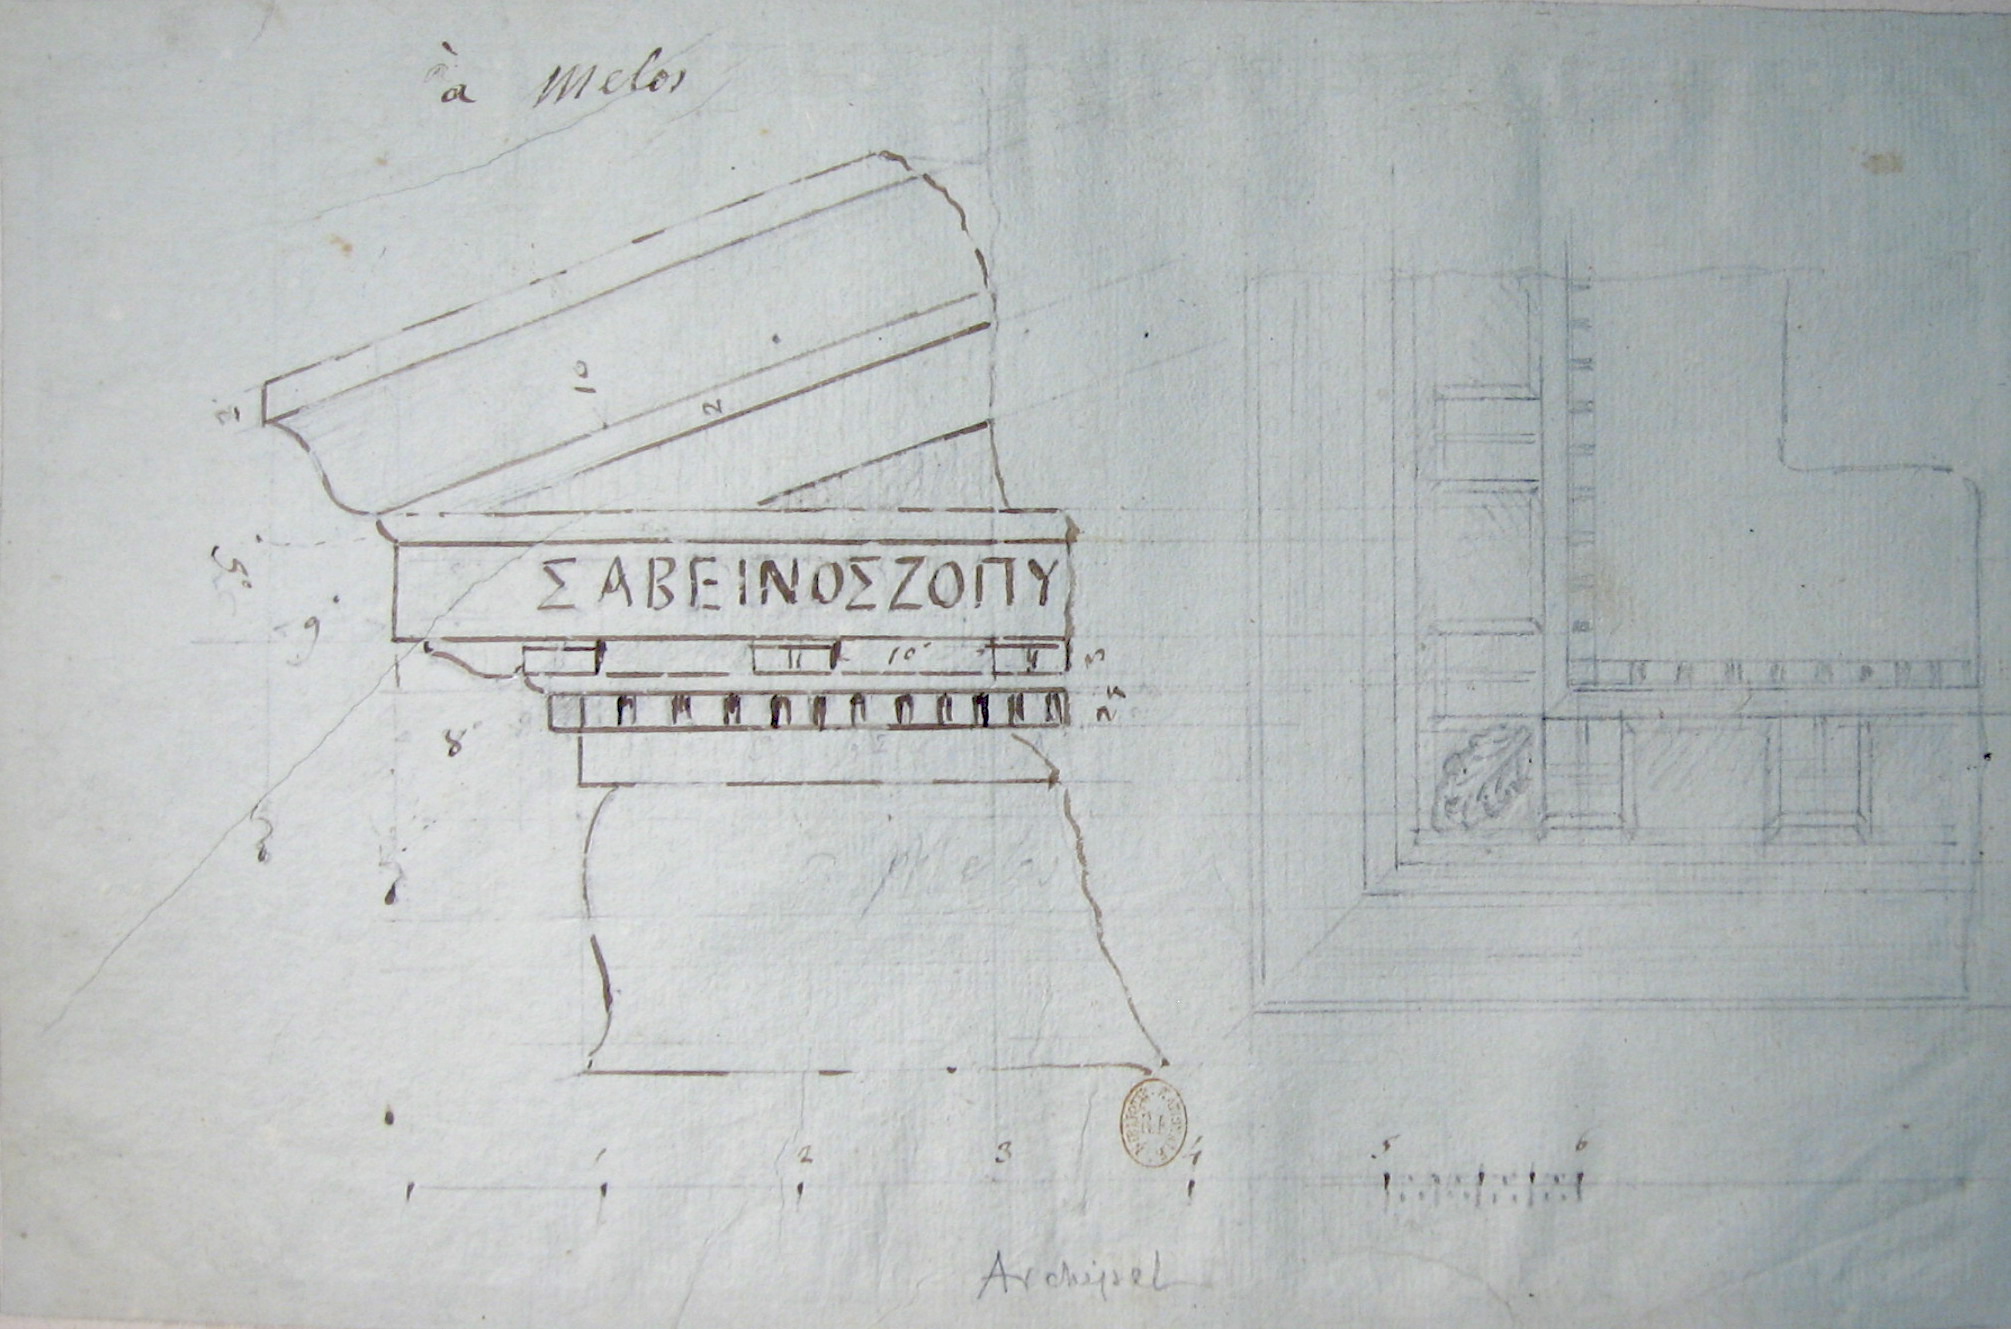 à Melos
2
10
2
5
ΣΑΒΕΙΝΟΣΖΟΠΥ
9
11 10 11 3
8
Melos
1 2 3 4 5 6
Archipel